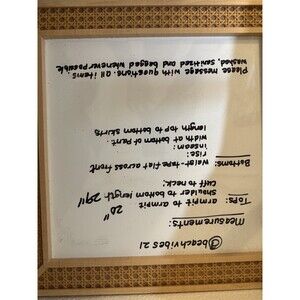 @beachvibes21
Measurements:
Tops: armpit to armpit 20"
Shoulder to bottom length 29"
Cuff to neck:
Bottoms: Waist-tape flat across front
rise:
inseam:
width at bottom of pant.
length top to bottom skirts
Please message with questions. all items
washed, sanitized and bagged whenever possible